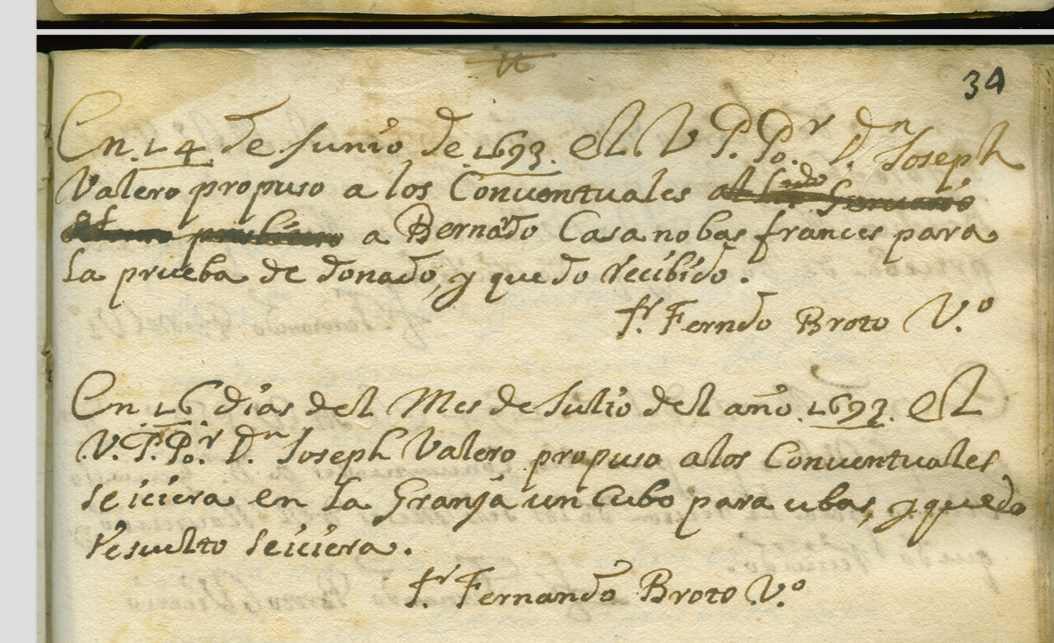 34
En 14 de Junio de 1693. el V P. Por. D.n Joseph
Valero propuso a los Conventuales al
a Bernado Casanobas frances para
la prueba de donado, y quedo recibido.
fr. Ferndo Broto V.o
En 16 dias del Mes de Julio del año 1693. el
V. P. Por. D.n Joseph Valero propuso a los Conventuales
se iciera en la Granja un Cubo para ubas, y quedo
resuelto se iciera.
fr. Fernando Broto V.o